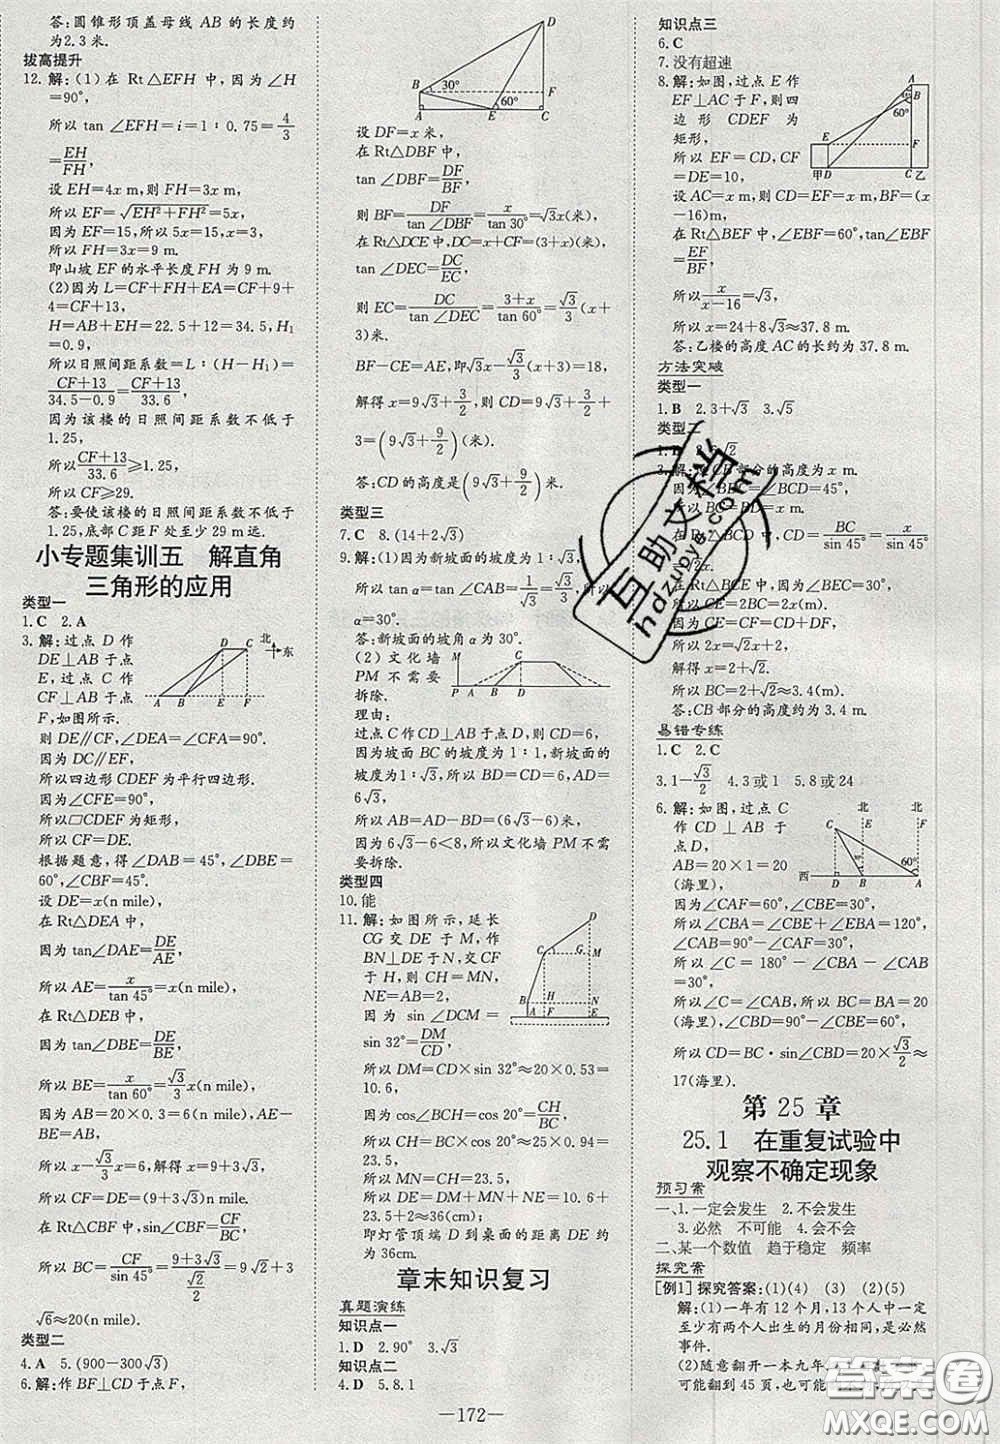 答:圆锥形顶盖母线 AB 的长度约
为2.3 米.
拔高提升
12. 解:(1)在 Rt△EFH 中,因为∠H
=90°,
所以 tan ∠EFH=i=1∶0.75=4/3
=EH/FH,
设 EH=4x m,则 FH=3x m,
所以 EF=√(EH²+FH²)=5x,
因为 EF=15,所以 5x=15,x=3,
所以 FH=3x=9 m.
即山坡 EF 的水平长度 FH 为 9 m.
(2)因为 L=CF+FH+EA=CF+9+
4=CF+13,
H=AB+EH=22.5+12=34.5,H₁
=0.9,
所以日照间距系数=L∶(H-H₁)=
(CF+13)/(34.5-0.9)=(CF+13)/33.6,
因为该楼的日照间距系数不低于
1.25,
所以(CF+13)/33.6≥1.25,
所以 CF≥29.
答:要使该楼的日照间距系数不低于
1.25,底部 C 距 F 处至少 29 m 远.
小专题集训五 解直角
三角形的应用
类型一
1.C 2.A
3. 解:过点 D 作
DE⊥AB 于点
E,过点 C 作
CF⊥AB 于点
F,如图所示.
D C 北 东
A B E F
则 DE∥CF,∠DEA=∠CFA=90°.
因为 DC∥EF,
所以四边形 CDEF 为平行四边形.
因为∠CFE=90°,
所以□CDEF 为矩形,
所以 CF=DE.
根据题意,得∠DAB=45°,∠DBE=
60°,∠CBF=45°.
设 DE=x(n mile),
在 Rt△DEA 中,
因为 tan∠DAE=DE/AE,
所以 AE=x/tan 45°=x(n mile).
在 Rt△DEB 中,
因为 tan∠DBE=DE/BE,
所以 BE=x/tan 60°=√3/3 x(n mile).
因为 AB=20×0.3=6(n mile),AE-
BE=AB,
所以 x-√3/3 x=6,解得 x=9+3√3,
所以 CF=DE=(9+3√3)n mile.
在 Rt△CBF 中,sin∠CBF=CF/BC,
所以 BC=CF/sin 45°=(9+3√3)/(√2/2)=9√2+3
√6≈20(n mile).
类型二
4.A 5.(900-300√3)
6. 解:作 BF⊥CD 于点 F,
D
B 30° F
60°
A E C
设 DF=x 米,
在 Rt△DBF 中,
tan ∠DBF=DF/BF,
则 BF=DF/tan ∠DBF=x/tan 30°=√3x(米).
在 Rt△DCE 中,DC=x+CF=(3+x)米,
tan ∠DEC=DC/EC,
则 EC=DC/tan ∠DEC=(3+x)/tan 60°=√3/3(x+
3)米.
BF-CE=AE,即√3x-√3/3(x+3)=18,
解得 x=9√3+3/2,则 CD=9√3+3/2+
3=(9√3+9/2)(米).
答:CD 的高度是(9√3+9/2)米.
类型三
7.C 8.(14+2√3)
9. 解:(1)因为新坡面的坡度为1∶√3,
所以 tan α=tan ∠CAB=1/√3=√3/3,所以
α=30°.
答:新坡面的坡角 α 为 30°.
(2)文化墙
PM 不需要
拆除.
M C
P A B D
理由:
过点 C 作 CD⊥AB 于点 D,则 CD=6,
因为坡面 BC 的坡度为 1∶1,新坡面的
坡度为 1∶√3,所以 BD=CD=6,AD=
6√3,
所以 AB=AD-BD=(6√3-6)米,
因为 6√3-6<8,所以文化墙 PM 不需
要拆除.
类型四
10. 能
11. 解:如图所示,延长
CG 交 DE 于 M,作
BN⊥DE 于 N,交 CF
于 H,则 CH=MN,
NE=AB=2,
D
C G M
B H N
A F E
因为 sin ∠DCM=
sin 32°=DM/CD,
所以 DM=CD×sin 32°=20×0.53=
10.6,
因为 cos∠BCH=cos 20°=CH/BC,
所以 CH=BC×cos 20°=25×0.94=
23.5,
所以 DE=DM+MN+NE=10.6+
23.5+2≈36(cm),
即灯管顶端 D 到桌面的距离 DE 约
为 36cm.
章末知识复习
真题演练
知识点一
1.D 2.90° 3.√3
知识点二
4.D 5.8.1
知识点三
6.C
7. 没有超速
8. 解:如图,过点 E 作
EF⊥AC 于 F,则四
边形 CDEF 为
矩形,
所以 EF=CD,CF
=DE=10,
A
45° B
60°
E F
甲 D C 乙
设 AC=x m,则 CD=EF=x m,BF=(x
-16)m,
在 Rt△BEF 中,∠EBF=60°,tan∠EBF
=EF/BF,
所以x/(x-16)=√3,
所以 x=24+8√3≈37.8 m.
答:乙楼的高度 AC 的长约为 37.8 m.
方法突破
类型一
1.B 2.3+√3 3.√5
类型二
3. 解:设 CB 部分的高度为 x m.
因为∠BEC=∠BCD=45°,
在 Rt△BCE 中,CE=2BE=2x(m).
因为 CE=CF+EF=CD+DF,
解得 x=2+√2.
所以 BC=2+√2≈3.4(m).
答:CB 部分的高度约为 3.4 m.
易错专练
1.C 2.C
3.1-√3/2 4.3 或 1 5.8 或 24
6. 解:如图,过点 C
作 CD ⊥ AB 于
点 D,
AB=20×1=20
(海里).
北 北
C E F
60°
西 D B A
因为∠CAF=60°,∠CBE=30°,
所以∠CBA=∠CBE+∠EBA=120°,
∠CAB=90°-∠CAF=30°,
所以∠C=180°-∠CBA-∠CAB
=30°,
所以∠C=∠CAB,所以 BC=BA=20
(海里),∠CBD=90°-∠CBE=60°,
所以 CD=BC·sin∠CBD=20×√3/2≈
17(海里).
第 25 章
25.1 在重复试验中
观察不确定现象
预习案
一、1. 一定会发生 2. 不会发生
3. 必然 不可能 4. 会不会
二、某一个数值 趋于稳定 频率
探究案
[例1] 探究答案:(1)(4) (3) (2)(5)
解:(1)一年有 12 个月,13 个人中一定
有两个人出生的月份相同,是必然
事件.
(2)随意翻开一本九年
可能翻到 45 页,也可能
—172—
互助文档
hdzuoye.com
答案圈
MXQE.COM